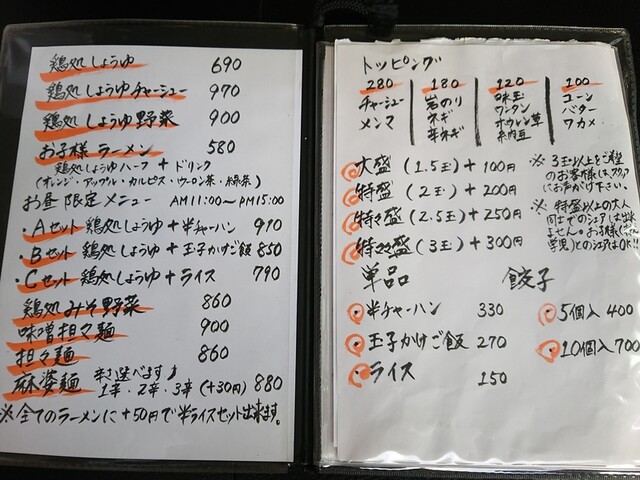 鶏処しょうゆ 690
鶏処しょうゆチャーシュー 970
鶏処しょうゆ野菜 900
お子様ラーメン 580
鶏処しょうゆハーフ + ドリンク
(オレンジ・アップル・カルピス・ウーロン茶・緑茶)
お昼限定メニュー AM11:00〜PM15:00
・Aセット 鶏処しょうゆ + 半チャーハン 910
・Bセット 鶏処しょうゆ + 玉子かけご飯 850
・Cセット 鶏処しょうゆ + ライス 790
鶏処みそ野菜 860
味噌担々麺 900
担々麺 860
麻婆麺 辛さ選べます♪ 1辛・2辛・3辛 (+30円) 880
※全てのラーメンに+50円で半ライスセット出来ます。
トッピング
280 180 120 100
チャーシュー 岩のり 味玉 コーン
メンマ ネギ ワンタン バター
辛ネギ ホウレン草 ワカメ
納豆
大盛 (1.5玉) + 100円
特盛 (2玉) + 200円
特々盛 (2.5玉) + 250円
特々盛 (3玉) + 300円
※ 3玉以上をご希望
のお客様はスタッフ
にお声がけ下さい。
※ 特盛以上の大人
同士でのシェアは出来
ません。お子様
学児)とのシェアはOK!!
単品
・半チャーハン 330
・玉子かけご飯 270
・ライス 150
餃子
・5個入 400
・10個入 700